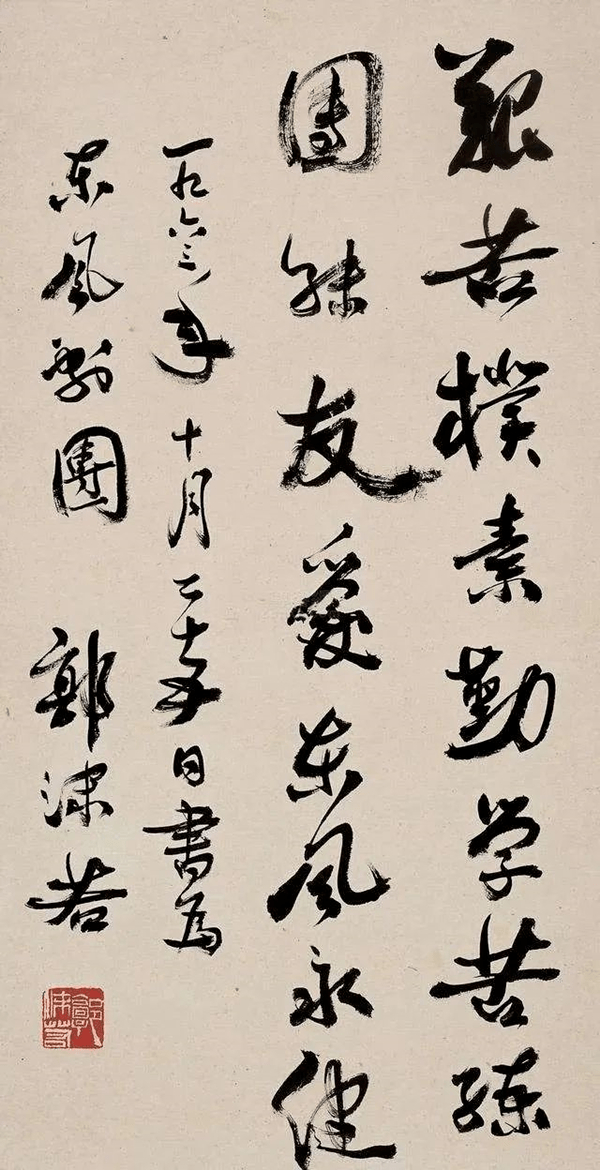 艰苦樸素勤学苦练
团结友爱东风永健
一九六三年十月二十五日書为
东风剧團 郭沫若
郭沫若